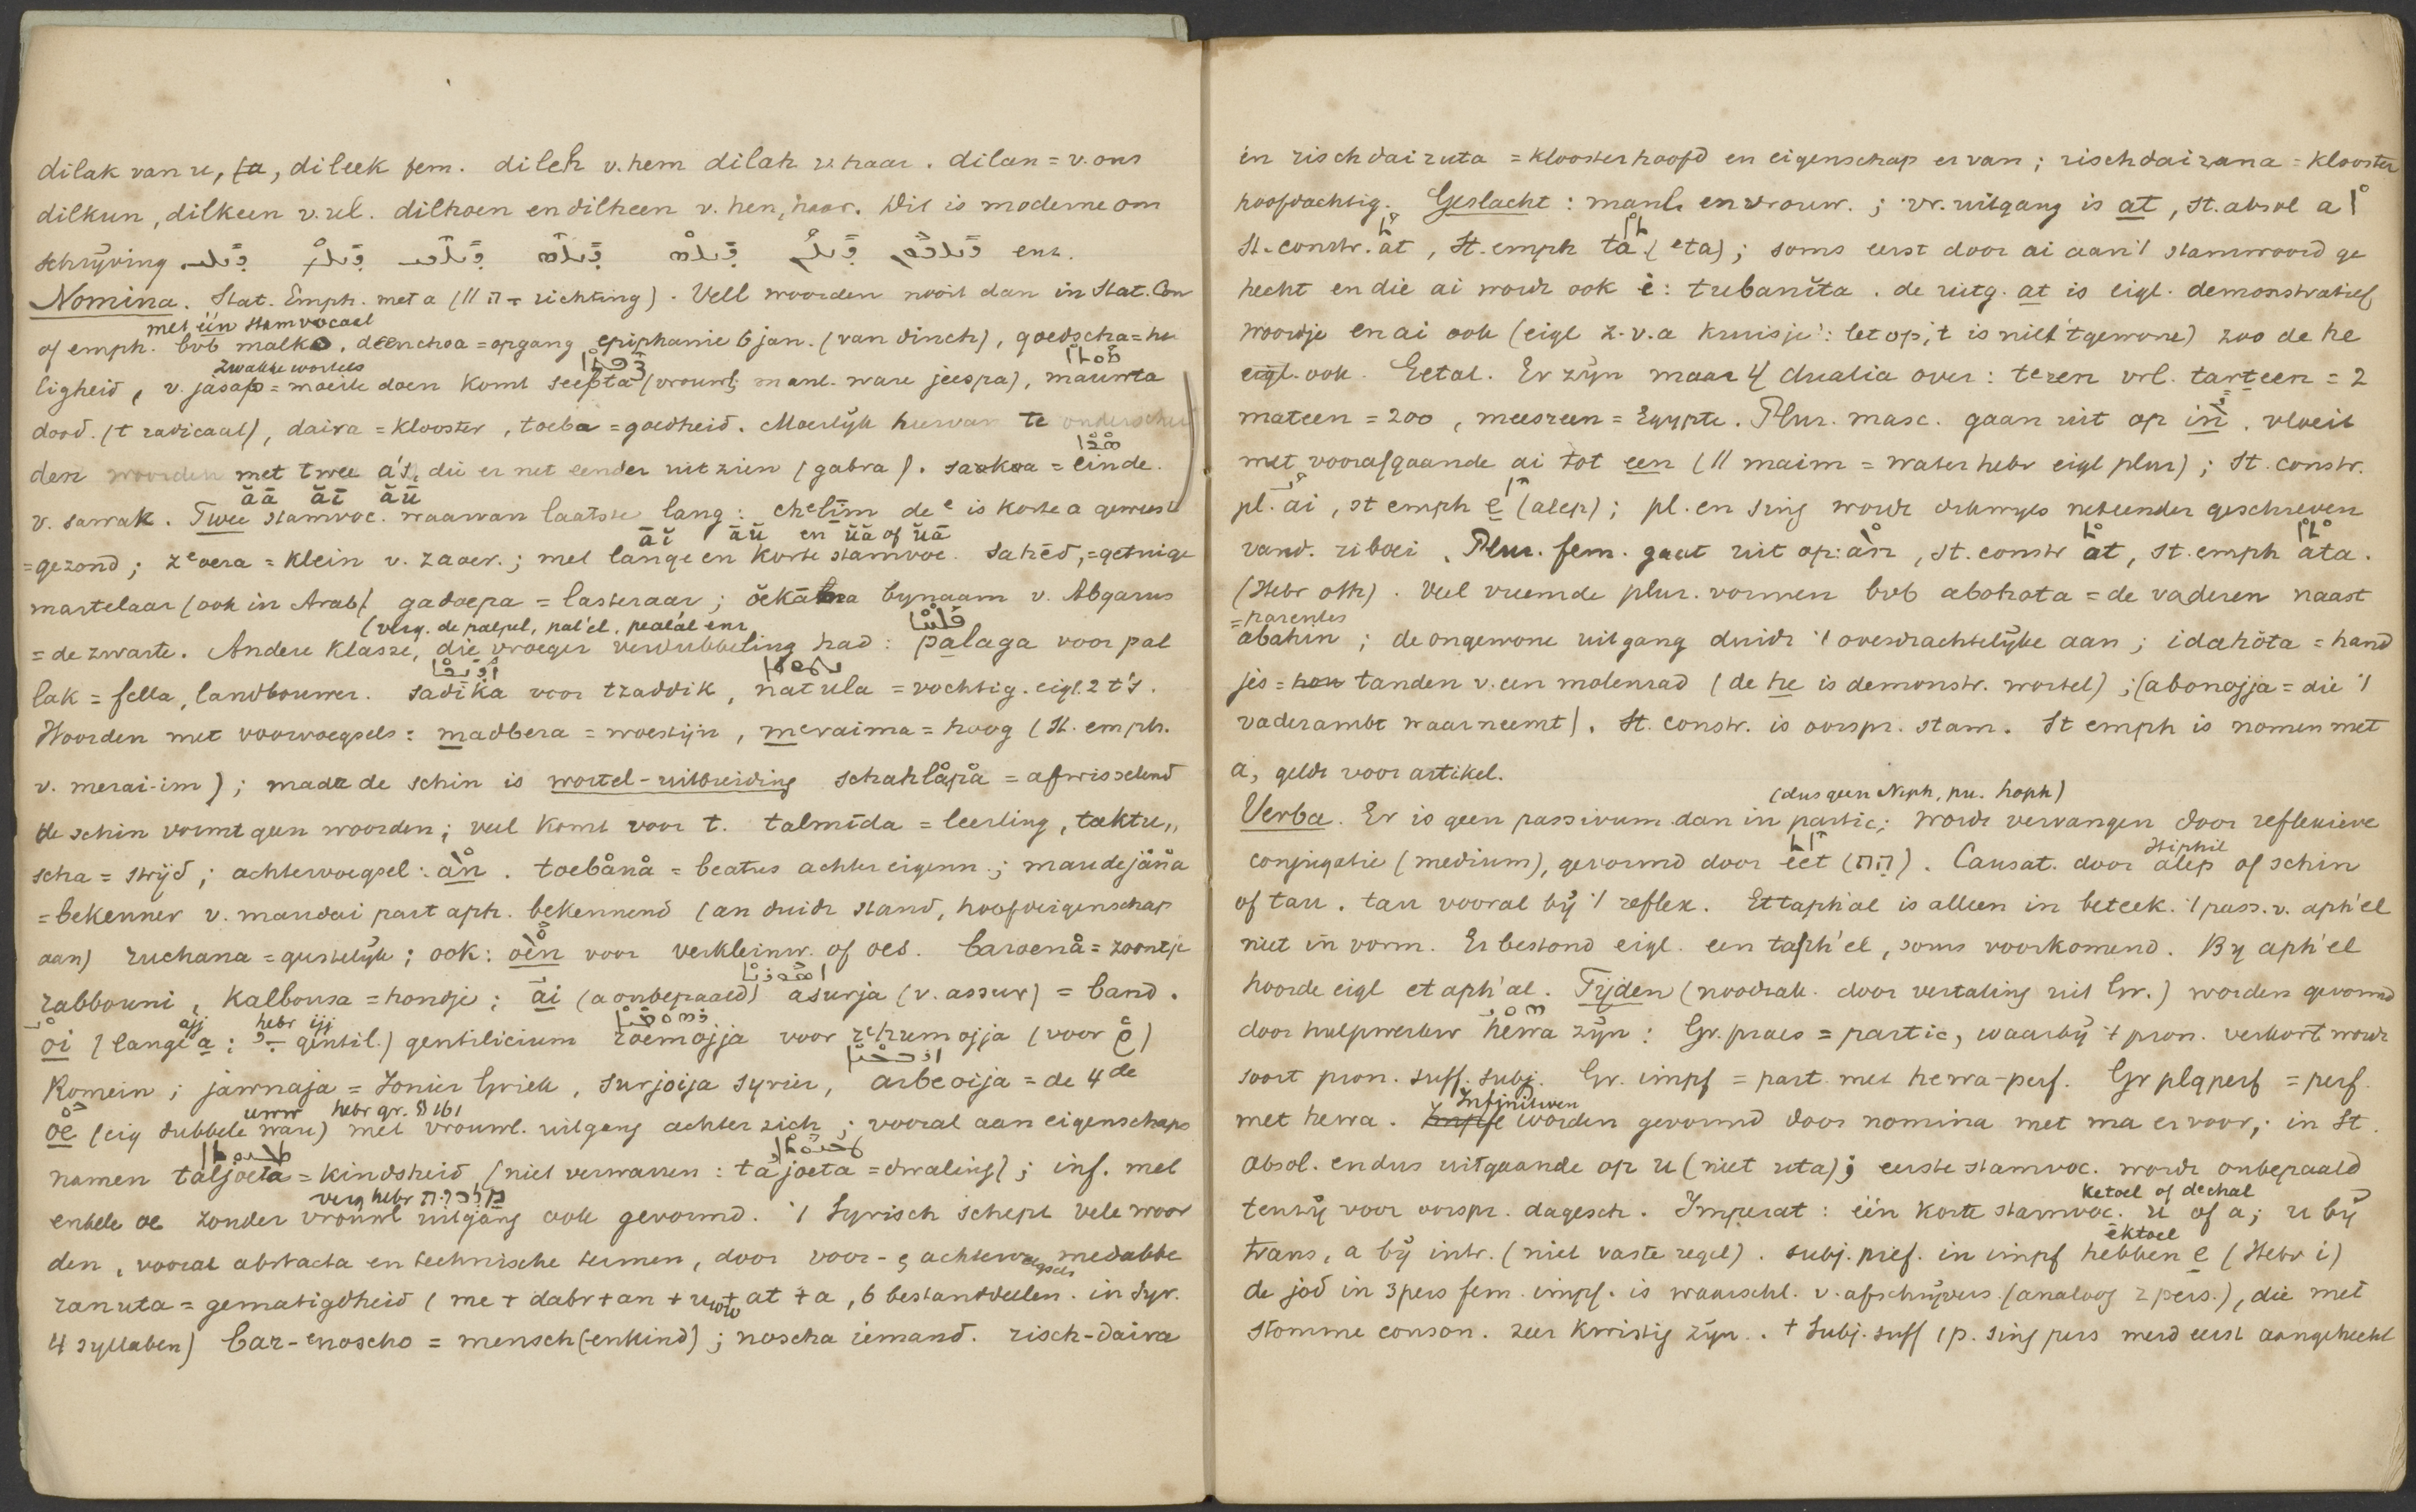 dilak van u, ta, dileek fem. dileh v. hem dilah v. haar. dilan = v. ons
dilkun, dilkeen v. ul. dilhoen en dilheen v. hen, haar. Dit is moderne om
schrijving ens.
Nomina. Stat. Emph. met a (// ה richting). Vell woorden nooit dan in Stat. Con
met één stamvocaal
of emph. bvb malko, deenchoa = opgang epiphanie 6 jan. (van dinch), qoedscha = he
zwakke wortels
ligheid, v. jasap = moeite doen komt seepta (vrouwl; manl. ware jeespa), mauwta
dood. (t radicaal), daira = klooster, toeba = goedheid. Moeilijk hiervan te onderschei
den woorden met twee a's, die er net eender uit zien (gabra). saukoa = einde.
ăā ăī ăū
v. sawak. Twee stamvoc. waarvan laatste lang: chelīm de e is korte a geweest
āĭ āŭ en ŭā of ŭā
= gezond; zeoera = klein v. zaoer.; met lange en korte stamvoc. sahēd, = getuige
martelaar (ook in Arab). gadoepa = lasteraar; oekāma bynaam v. Abgarus
(verg. de palpel, pal'el, pealal enz
= de zwarte. Andere klasse, die vroeger verdubbeling had: palaga voor pal
lak = fella, landbouwer. sadika voor tzaddik, natula = vochtig. eigl. 2 t's.
Woorden met voorvoegsels: madbera = woestijn, meraima = hoog (St. emph.
v. merai-im); made de schin is wortel-uitbreiding schahlåpå = afwisselend
de schin vormt geen woorden; veel komt voor t. talmīda = leerling, taktu,,
scha = strijd; achtervoegsel: ån. toebånå = beatus achter eigenn.; maudejåna
= bekenner v. maudai part aph. bekennend (an duidt stand, hoofdeigenschap
aan) ruchana = geestelijk; ook: oen voor verkleinw. of oes. baroenå = zoontje
rabbouni, kalbousa = hondje; āi (a onbepaald) asurja (v. assur) = band.
ajj hebr ijj
oi (lange a: gentil.) gentilicium roemojja voor rehumojja (voor
Romein; jawnaja = Ionier Griek, surjoija syrier, arbeoija = de 4de
uww hebr gr. § 161
oe (eig dubbele wau) met vrouwl. uitgang achter zich; vooral aan eigenschaps
namen taljoeta = kindsheid (niet verwarren: tajoeta = dwaling); inf. met
verg hebr
enkele oe zonder vrouwl uitgang ook gevormd. 't Syrisch schept vele woor
den, vooral abstracta en technische termen, door voor- & achtervoegsels medabbe
ranuta = gematigdheid (me + dabr + an + uww + at + a, 6 bestanddeelen. in Syr.
4 syllaben) bar-enoscho = mensch(enkind); noscha iemand. risch-daira
en rischdairuta = kloosterhoofd en eigenschap ervan; rischdairana = klooster
hoofdachtig. Geslacht: manl. en vrouw.; vr. uitgang is at, st. absol a
St. constr. at, St. emph ta (eta); soms eerst door ai aan 't stamwoord ge
hecht en die ai wordt ook i: tubanīta. de uitg. at is eigl. demonstratief
woordje en ai ook (eigl z.v.a kruisje: let op, 't is niet 't gewone) zoo de he
eigl. ook. Getal. Er zijn maar 4 dualia over: teren vrl. tarteen = 2
mateen = 200, meesreen = Egypte. Plur. masc. gaan uit op in. vloeit
met voorafgaande ai tot een (// maim = water hebr eigl plur); St. constr.
pl. ai, st emph e (alep); pl. en sing wordt dikwyls neteender geschreven
vand. riboei. Plur. fem. gaat uit op: ån, st. constr åt, st. emph åta.
(Hebr oth). Veel vreemde plur. vormen bvb abohata = de vaderen naast
= parentes
abahin; de ongewone uitgang duidt 't overdrachtelijke aan; idahōta = hand
jes = hou tanden v. een molenrad (de he is demonstr. wortel); (abonojja = die 't
vaderambt waarneemt). St. constr. is oorspr. stam. St emph is nomen met
a, geldt voor artikel.
(dus geen Niph, pu. hoph)
Verba. Er is geen passivum dan in partic; wordt vervangen door reflexieve
Hiphil
conjugatie (medium), gevormd door eet (הת). Causat. door alep of schin
of tau. tau vooral bij 't reflex. Ettaph'al is alleen in beteek. 't pass. v. aph'el
niet in vorm. Er bestond eigl. een taph'el, soms voorkomend. By aph'el
hoorde eigl etaph'al. Tijden (noodzak. door vertaling uit Gr.) worden gevormd
door hulpwerkw hewa zijn: Gr. praes = partic, waarbij 't pron. verkort wordt
soort pron. suff. subj. Gr. impf = part. met hewa-perf. Gr plqperf = perf.
Infinitiven
met hewa. worden gevormd door nomina met ma ervoor; in St.
absol. en dus uitgaande op u (niet uta); eerste stamvoc. wordt onbepaald
ketoel of dechal
tenzij voor oorspr. dagesch. Imperat: één korte stamvoc. u of a; u bij
ektoel
trans, a bij intr. (niet vaste regel). subj. pref. in impf hebben e (Hebr i)
de jod in 3pers fem. impf. is waarschl. v. afschrijvers. (analoog 2 pers.), die met
stomme conson. zeer kwistig zijn.. 't Subj. suff 1 p. sing pers werd eerst aangehecht